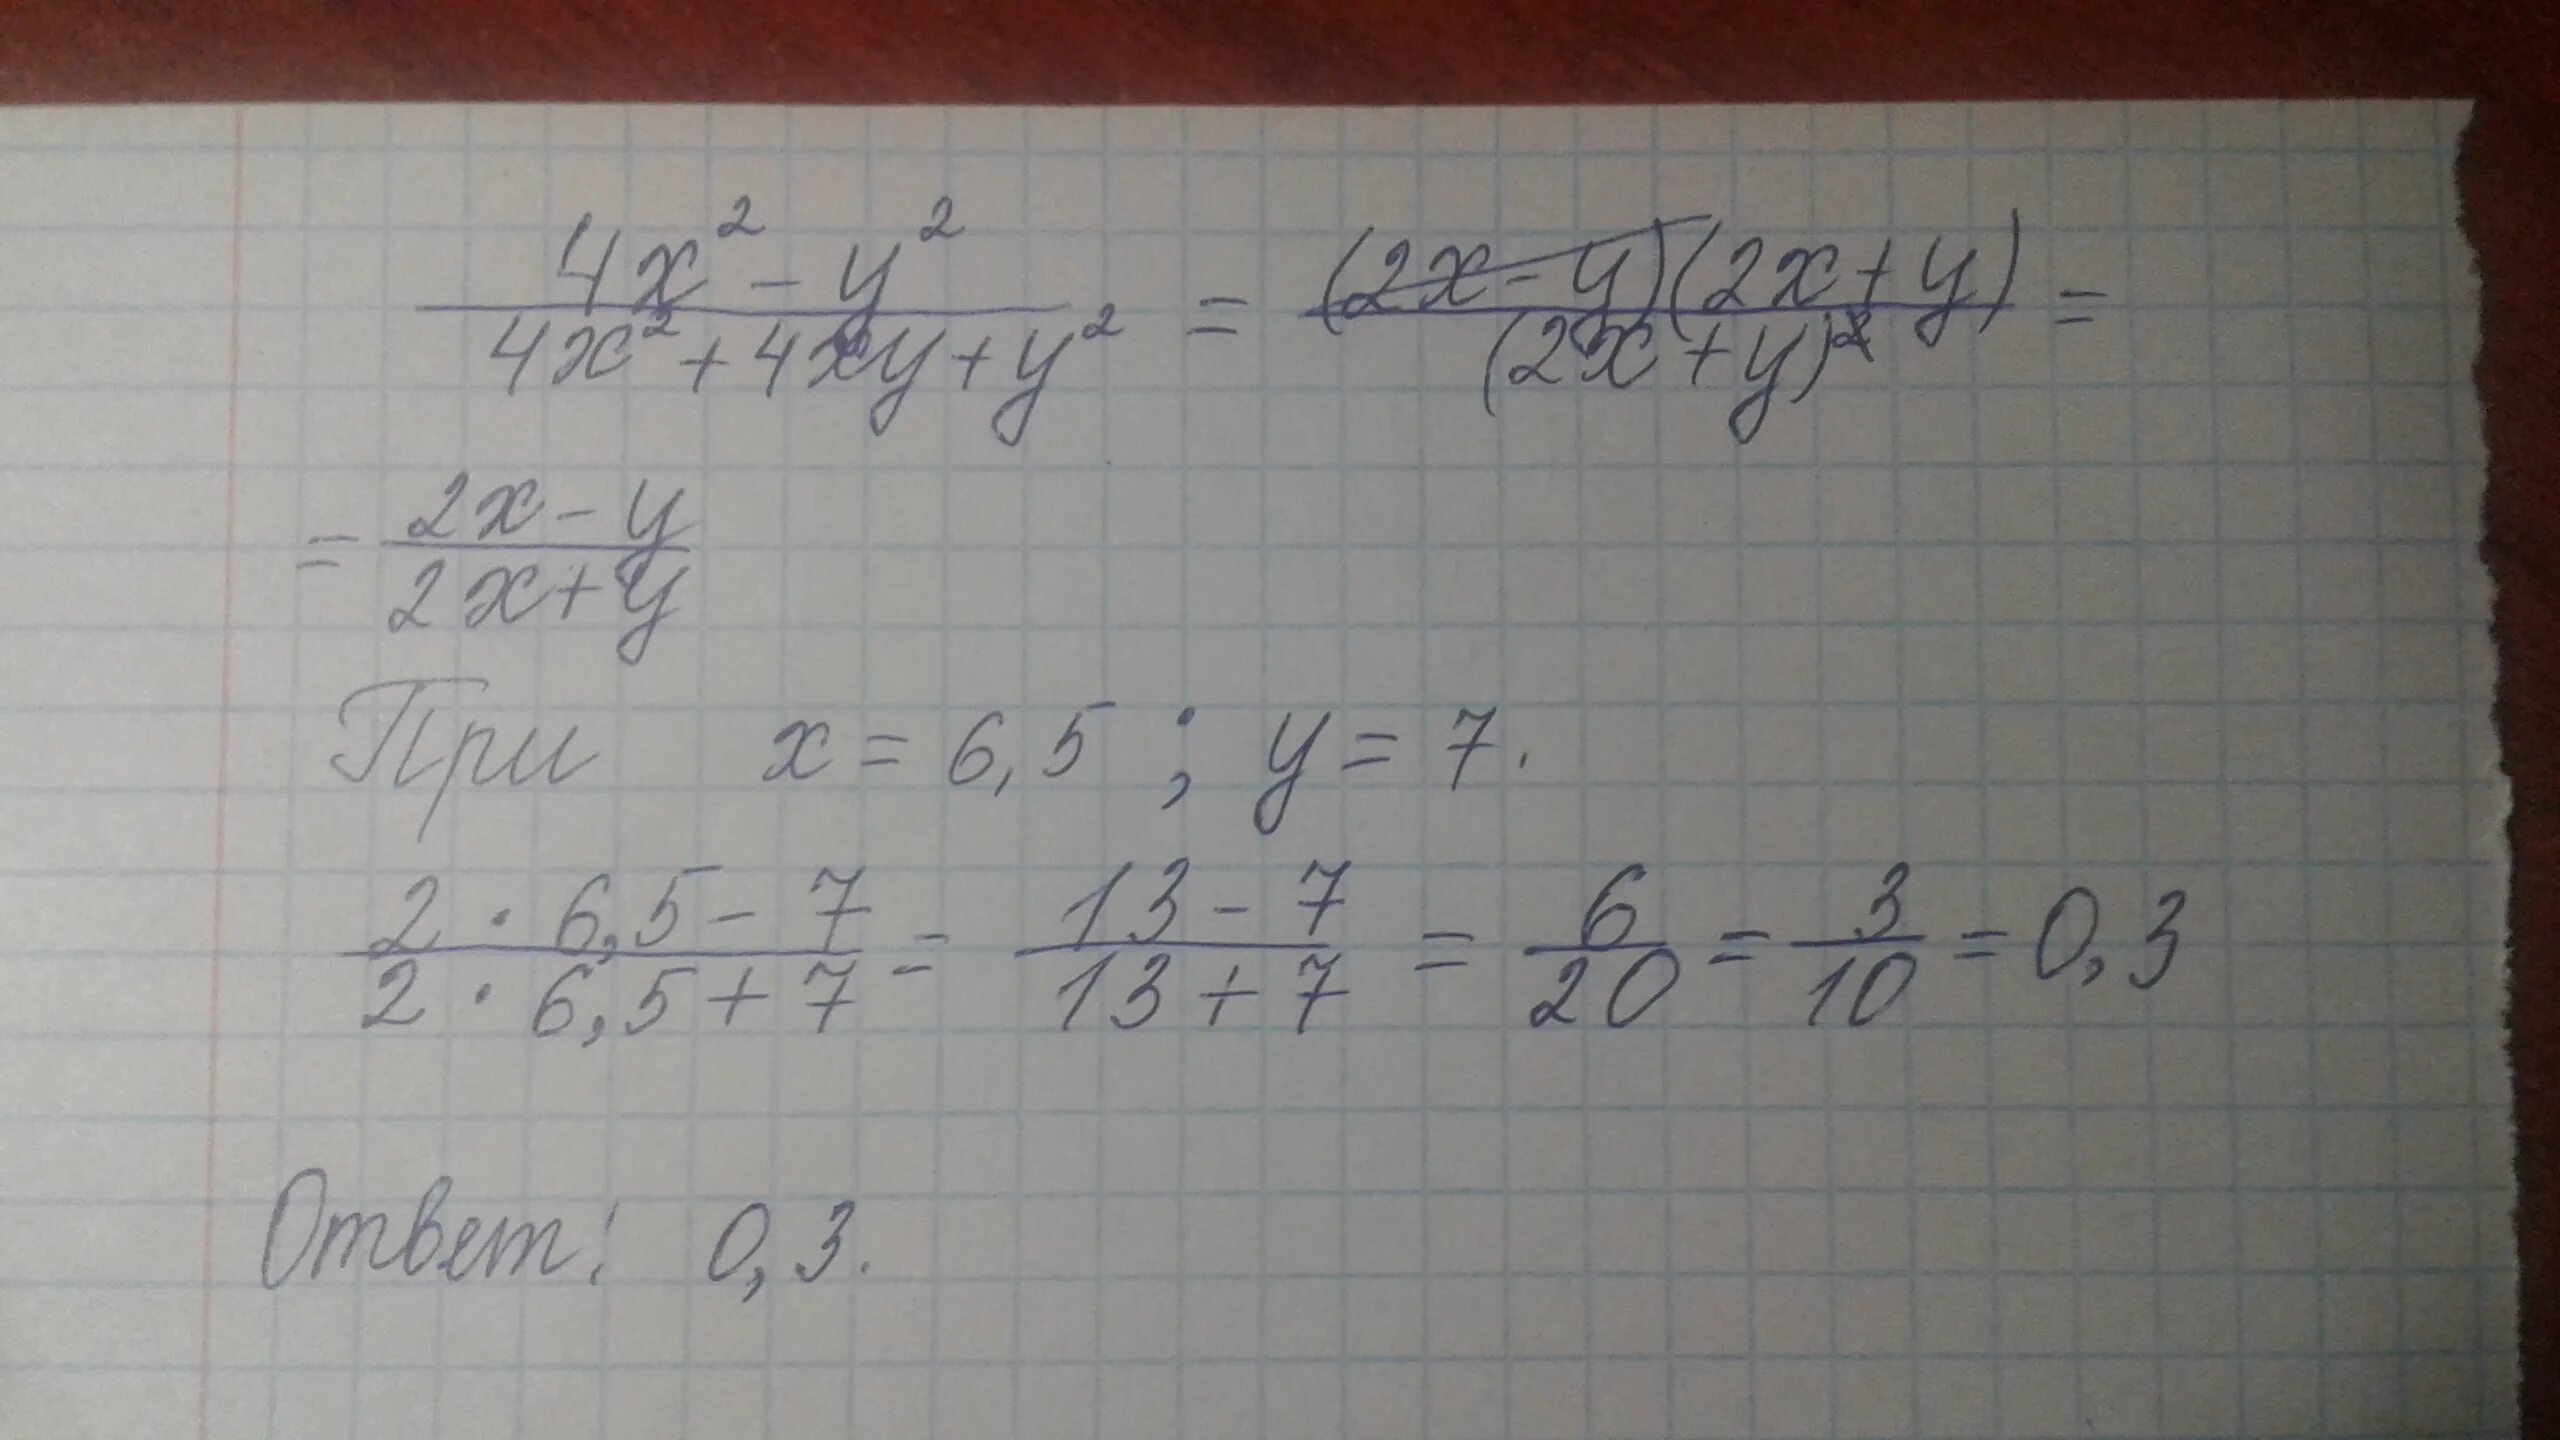 4x² - y² / 4x² + 4xy + y² = (2x - y)(2x + y) / (2x + y)² =
= 2x - y / 2x + y
При x = 6,5 ; y = 7.
2 · 6,5 - 7 / 2 · 6,5 + 7 = 13 - 7 / 13 + 7 = 6 / 20 = 3 / 10 = 0,3
Ответ: 0,3.